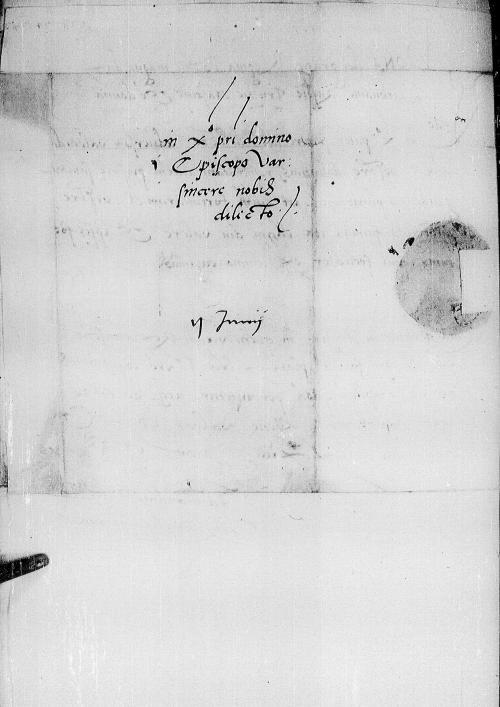 in X° pri domino
Episcopo Var:
sincere nobis
dilecto
Junij